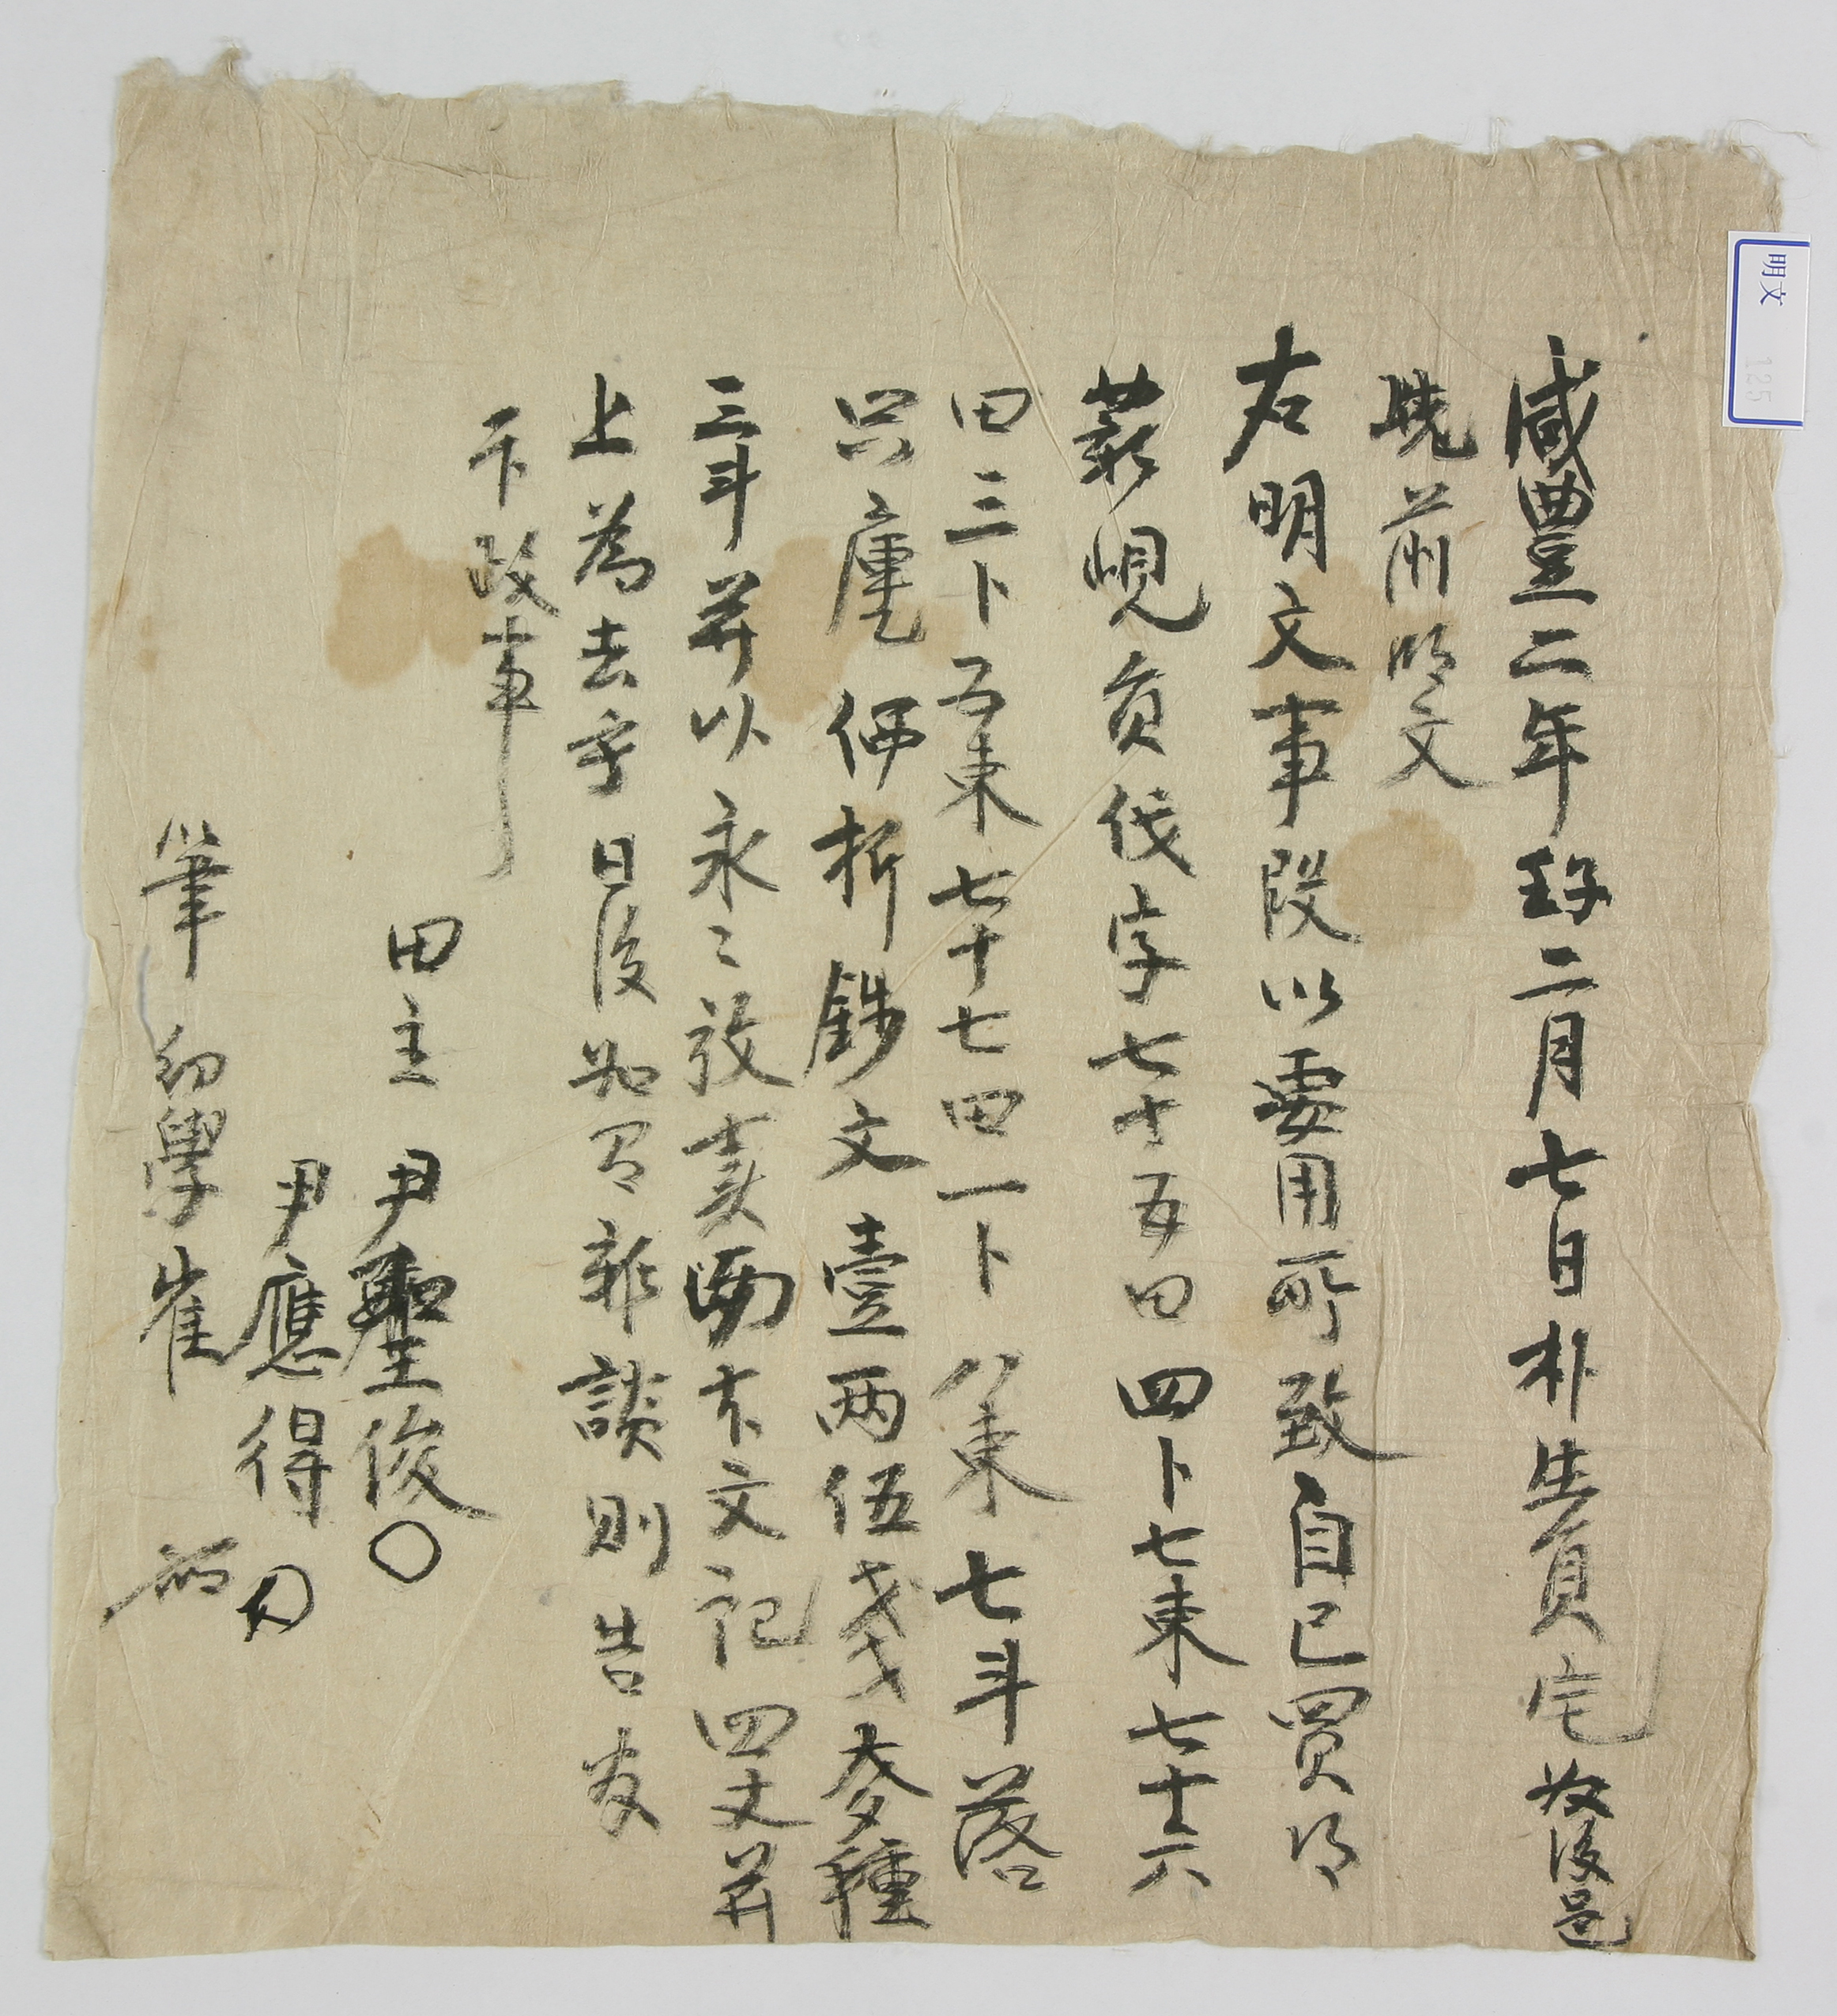 咸豐二年壬子二月七日朴生員宅奴後邑
處前明文
右明文事段以要用所致自己買得
薪峴員伐字七十五田四卜七束七十六
田三卜五束七十七田一卜八束七斗落
只庫價折錢文壹兩伍戔麥種
三斗并以永永放賣而本文記四丈并
上爲去乎日後如有雜談則告官
卞政事
田主 尹聖俊〇
尹應得
筆 幼學 崔
明文
125